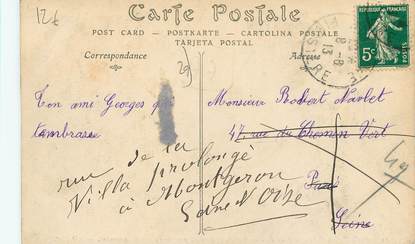 12€
Carte Postale
POST CARD - POSTKARTE - CARTOLINA POSTALE
TARJETA POSTAL
Correspondance
Adresse
29
5c
Ton ami Georges qui
t'embrasse
Monsieur Robert Navlet
47 rue du Chemin Vert
Paris
Seine
rue de la
Villa prolongé
à Montgeron
Seine & Oise